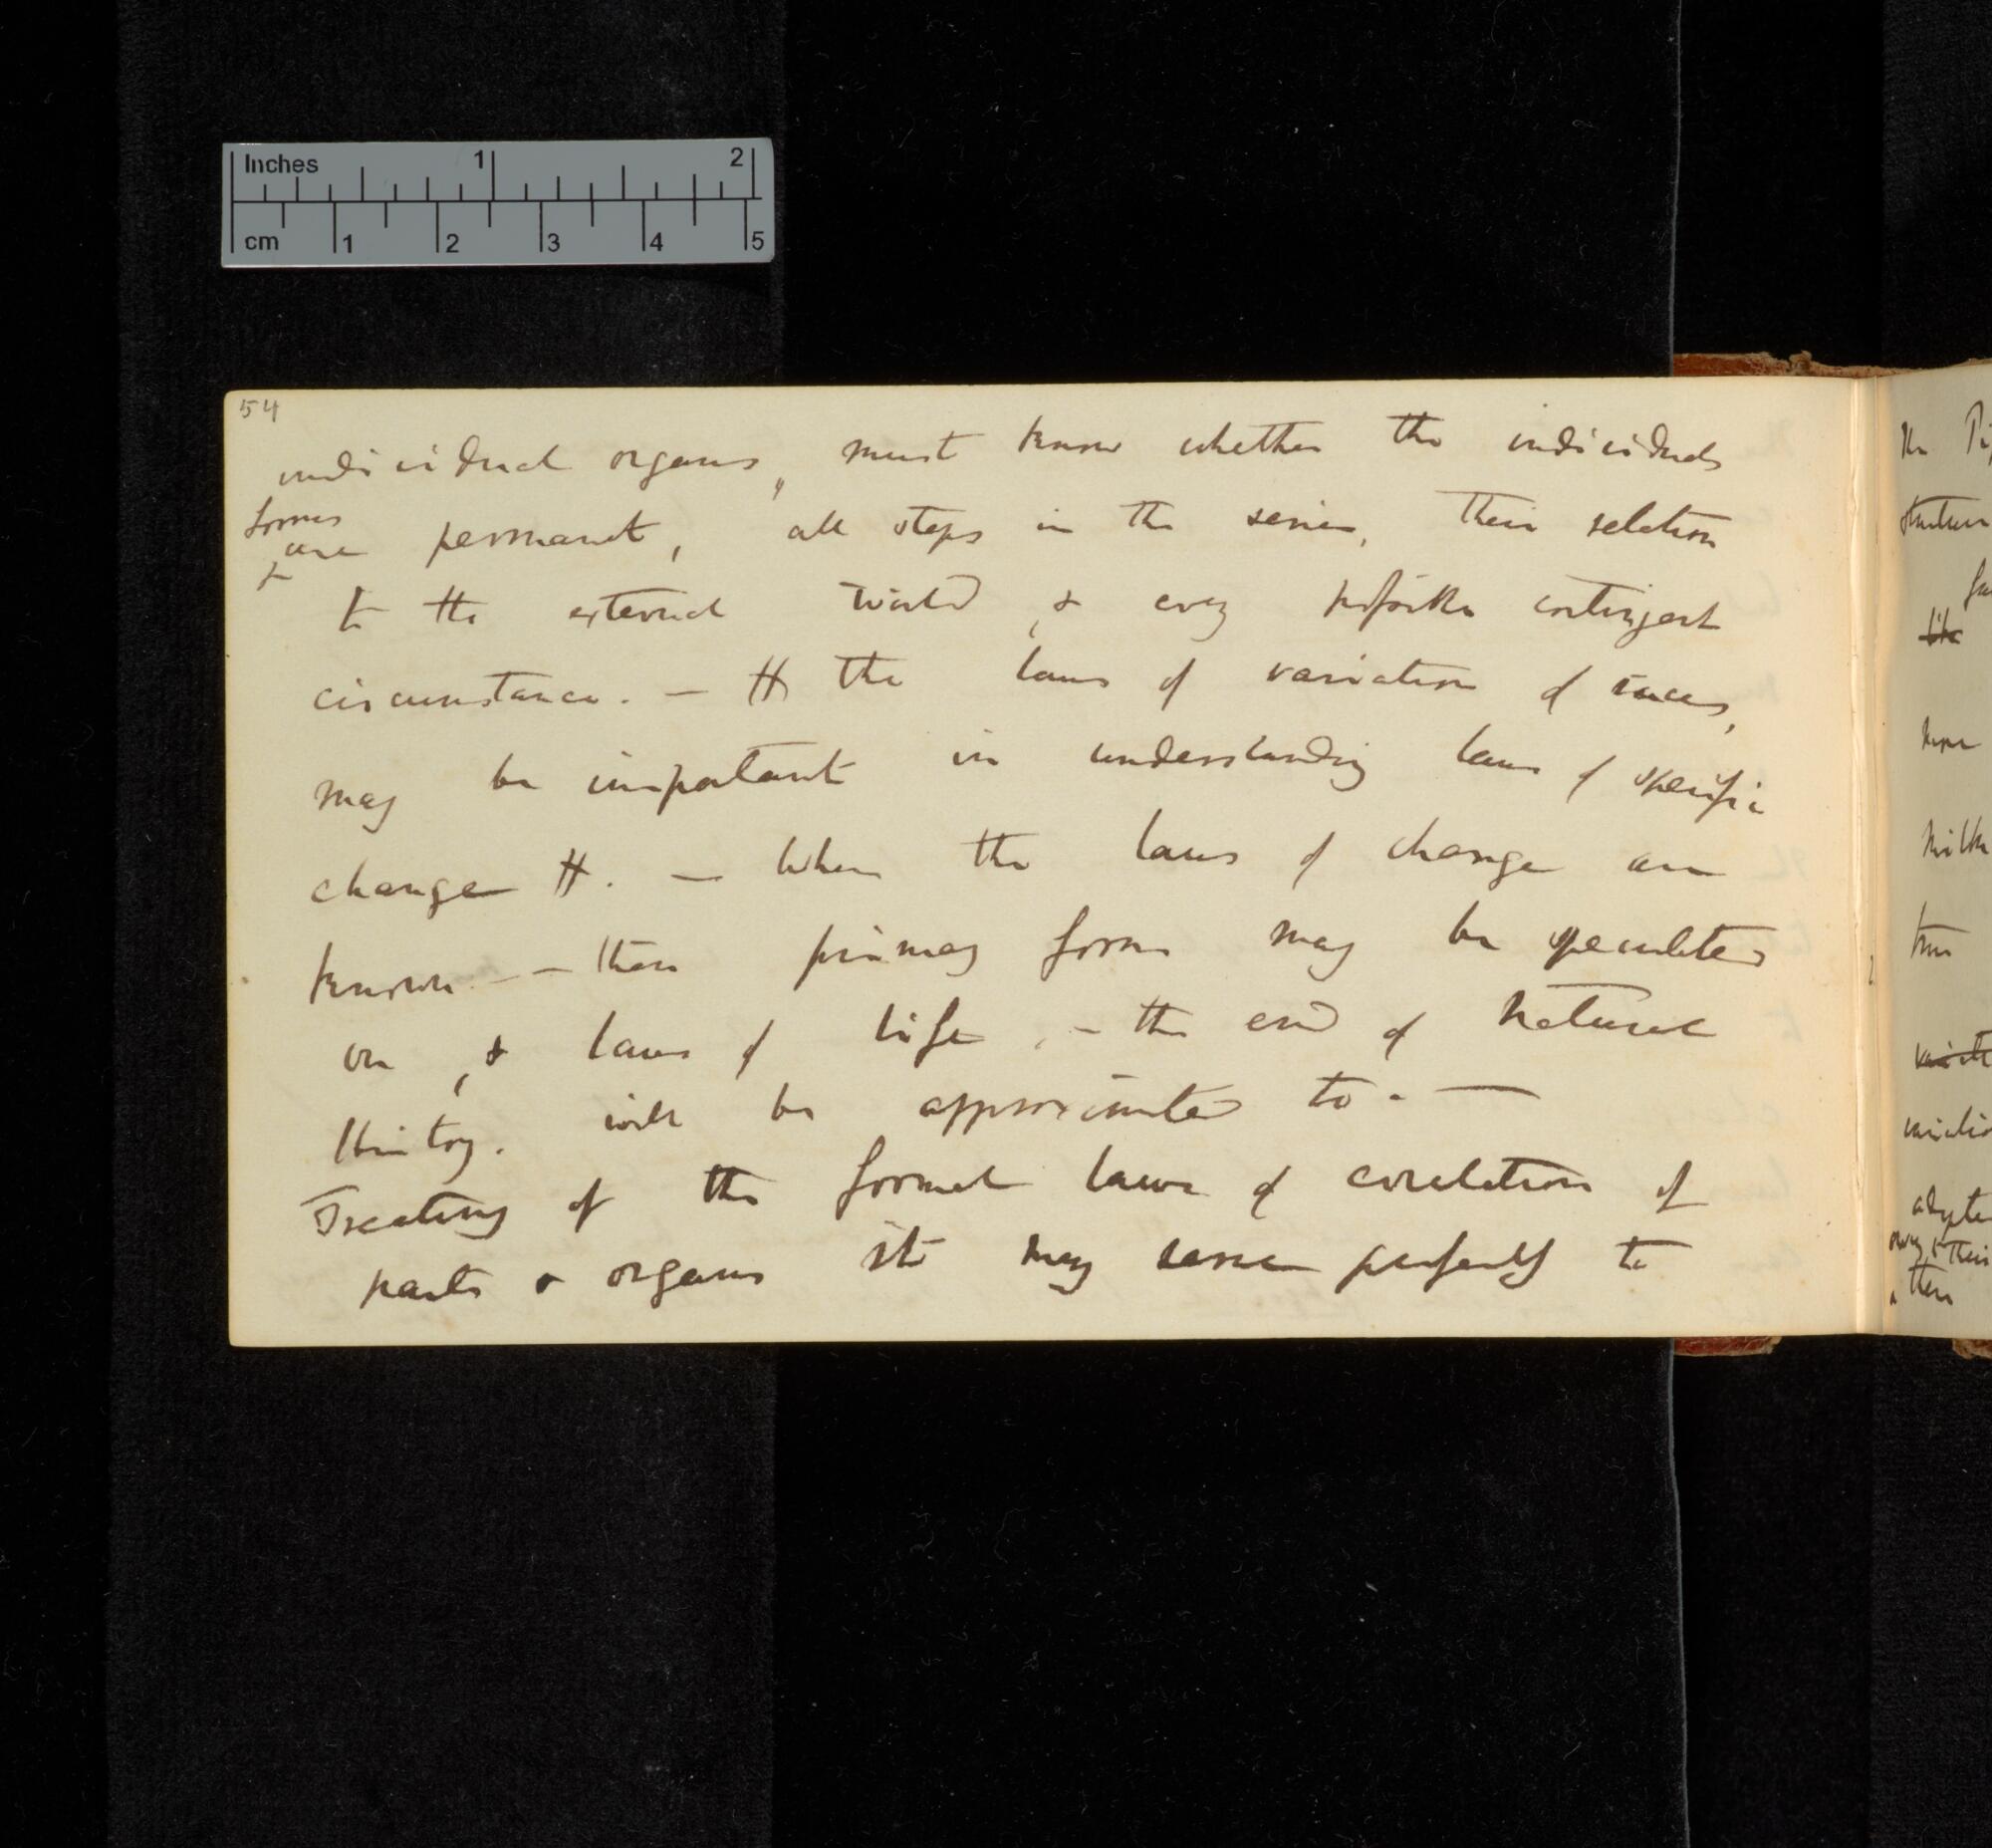 Inches 1 2
cm 1 2 3 4 5
54
individual organs, must know whether the individuals
forms
are permanent, all steps in the series, their relation
to the external world, & every possible contingent
circumstance. — H the laws of variation of races,
may be important in understanding laws of specific
change H. — When the laws of change are
known — — then primary forms may be speculated
on, & laws of life, — the end of Natural
History. will be approximated to. —
Treating of the formal laws of corelation of
parts & organs it may serve perfectly to
the
structure
like
milk
variatio
their
then